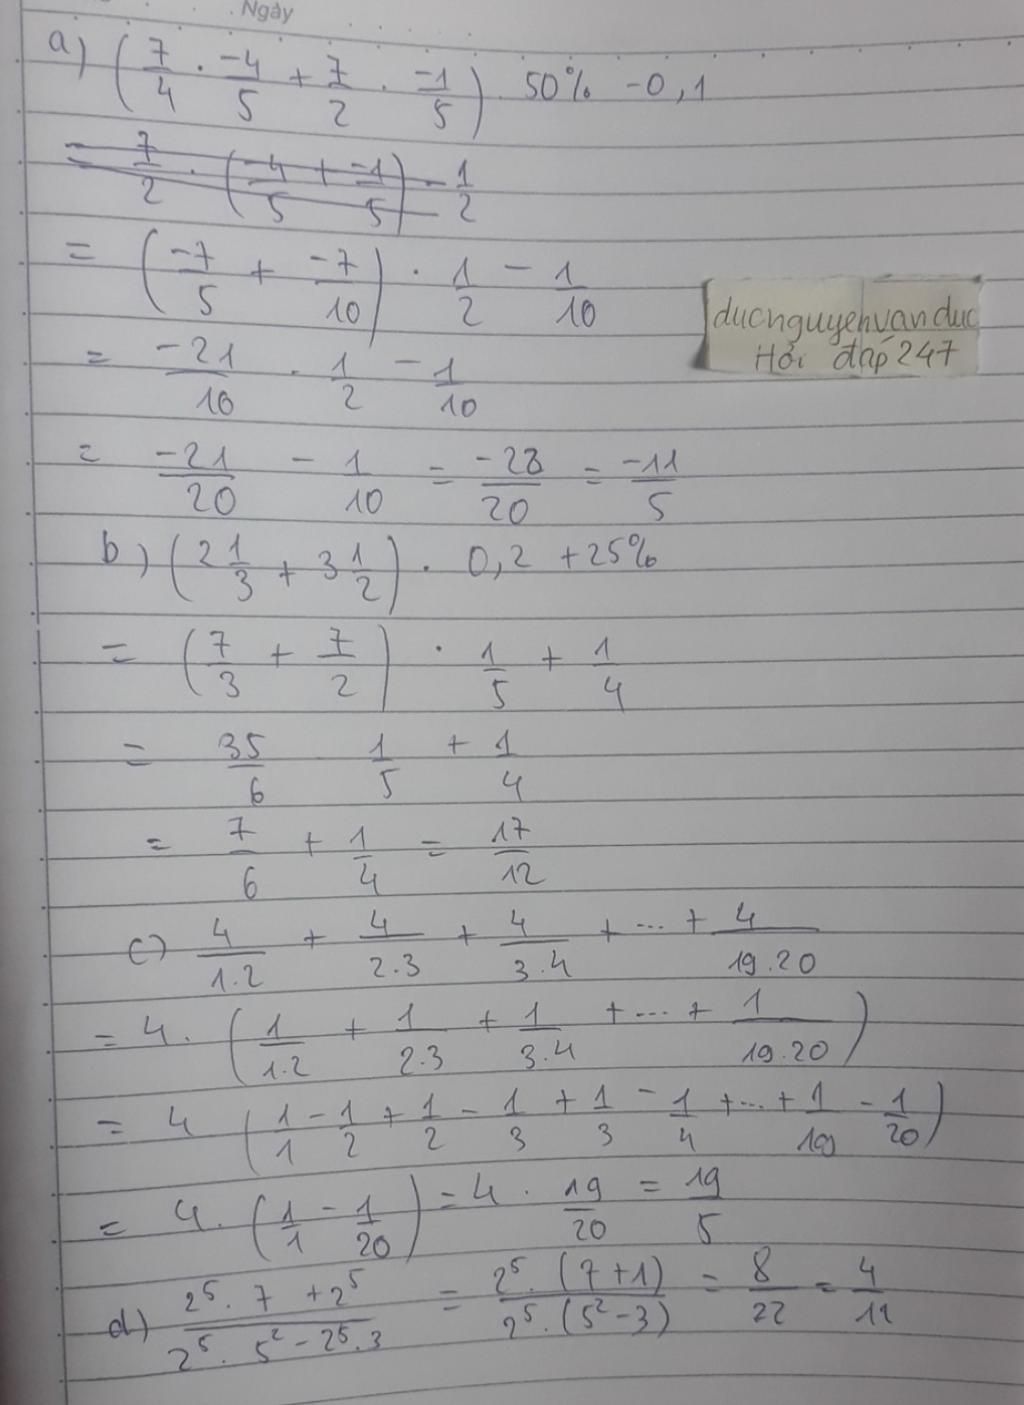 Ngày
a) (7/4 . -4/5 + 7/2 . -1/5) . 50% - 0,1
= 7/2 . (-4/5 + -1/5) - 1/2
= (-7/5 + -7/10) . 1/2 - 1/10
ducnguyenvanduc
Hỏi đáp 247
= -21/10 . 1/2 - 1/10
= -21/20 - 1/10 = -23/20 = -11/5
b) (2 1/3 + 3 1/2) . 0,2 + 25%
= (7/3 + 7/2) . 1/5 + 1/4
= 35/6 1/5 + 1/4
= 7/6 + 1/4 = 17/12
c) 4/1.2 + 4/2.3 + 4/3.4 + ... + 4/19.20
= 4. (1/1.2 + 1/2.3 + 1/3.4 + ... + 1/19.20)
= 4 (1/1 - 1/2 + 1/2 - 1/3 + 1/3 - 1/4 + ... + 1/19 - 1/20)
= 4. (1/1 - 1/20) = 4 . 19/20 = 19/5
d) 2⁵. 7 + 2⁵/2⁵. 5² - 2⁵.3 = 2⁵. (7+1)/2⁵. (5²-3) = 8/22 = 4/11